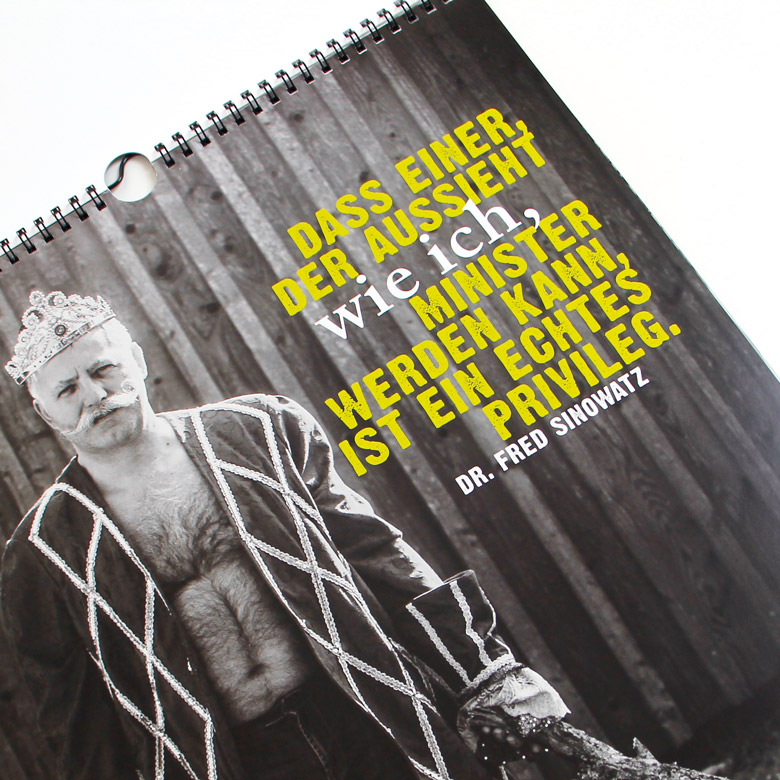 DASS EINER,
DER AUSSIEHT
wie ich,
MINISTER
WERDEN KANN,
IST EIN ECHTES
PRIVILEG.
DR. FRED SINOWATZ